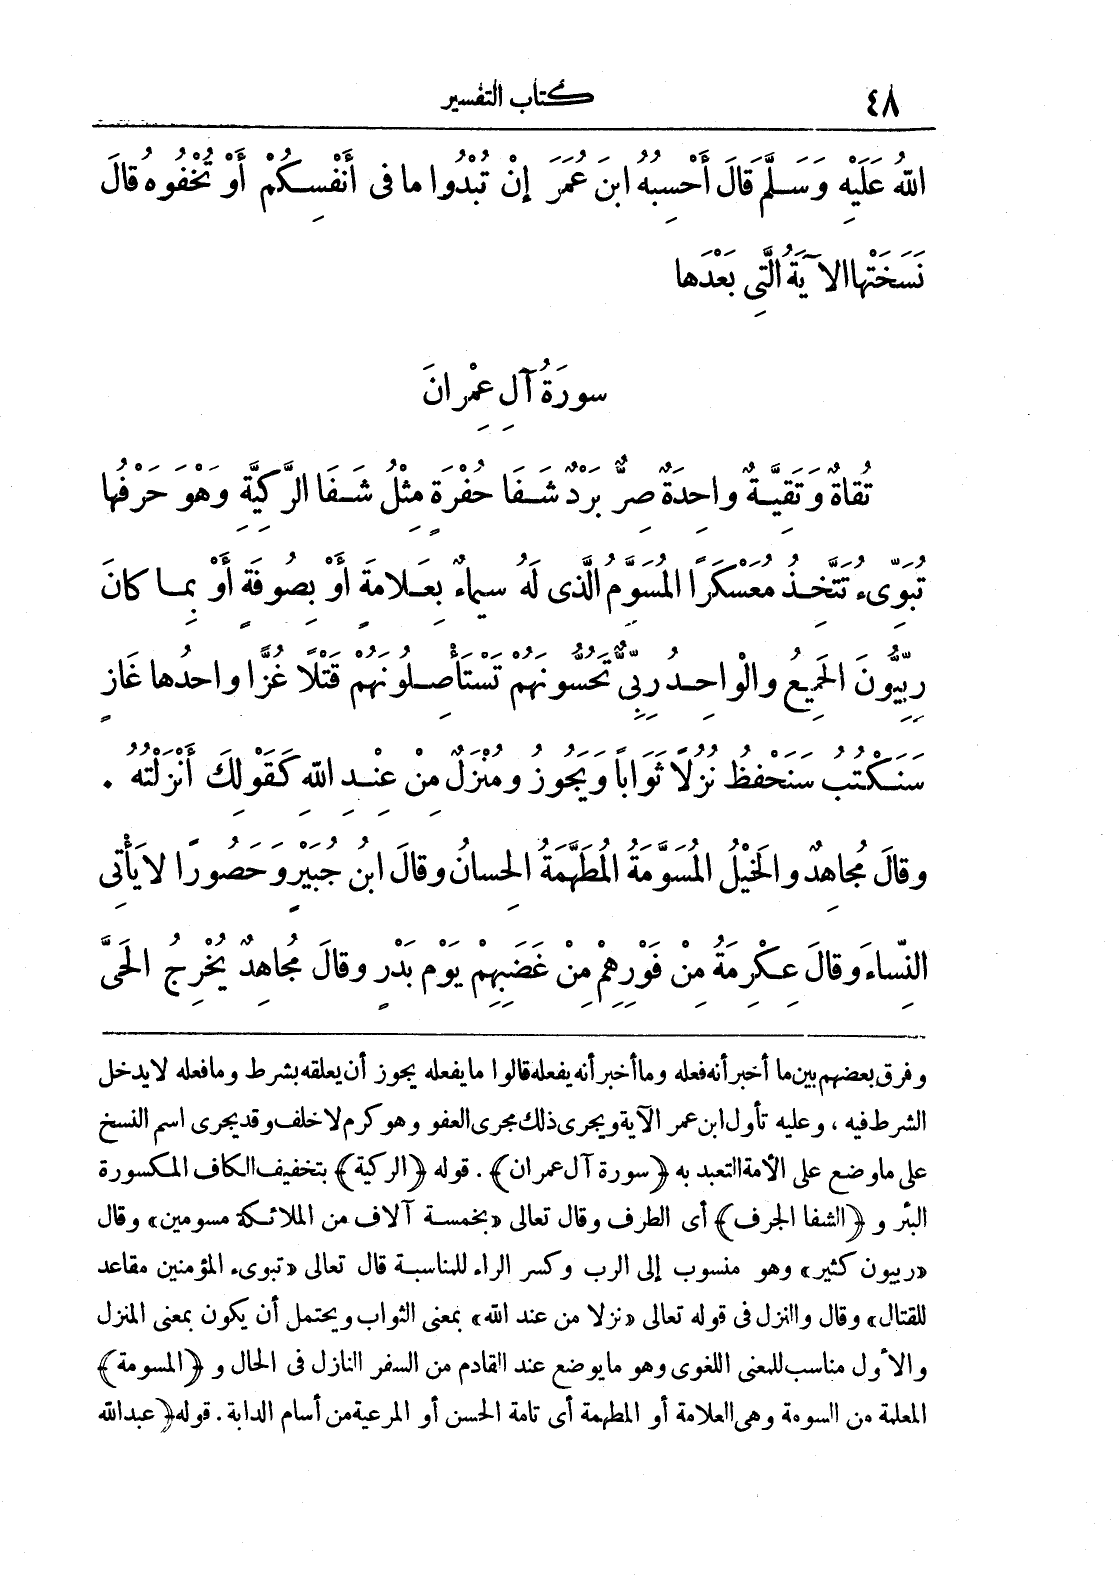 ٤٨ كتاب التفسير
اللهُ عَلَيْهِ وَسَلَّمَ قَالَ أَحْسِبُهُ ابنَ عُمَرَ إِنْ تُبْدُوا ما فى أَنْفُسِكُمْ أَوْ تُخْفُوهُ قالَ
نَسَخَتْها الآيَةُ الَّتِى بَعْدَها
سورَةُ آلِ عِمْرانَ
تُقاةٌ وَتَقِيَّةٌ واحِدَةٌ صِرٌّ بَرْدٌ شَفَا حُفْرَةٍ مِثْلُ شَفَا الرَّكِيَّةِ وَهْوَ حَرْفُها
تُبَوِّىءُ تَتَّخِذُ مُعَسْكَرًا المُسَوَّمُ الَّذى لَهُ سِيماءٌ بِعَلامَةٍ أَوْ بِصُوفَةٍ أَوْ بِما كانَ
رِبِّيُّونَ الجَمِيعُ والْواحِدُ رِبِّىٌّ تَحُسُّونَهُمْ تَسْتَأْصِلُونَهُمْ قَتْلًا غُزًّا واحِدُها غَازٍ
سَنَكْتُبُ سَنَحْفَظُ نُزُلًا ثَوَاباً وَيَجُوزُ ومُنْزَلٌ مِنْ عِنْدِ اللهِ كَقَوْلِكَ أَنْزَلْتُهُ .
وقالَ مُجاهِدٌ والخَيْلُ المُسَوَّمَةُ المُطَهَّمَةُ الحِسانُ وقالَ ابنُ جُبَيْرٍ وَحَصُورًا لا يَأْتِى
النِّساءَ وقالَ عِكْرِمَةُ مِنْ فَوْرِهِمْ مِنْ غَضَبِهِمْ يَوْمَ بَدْرٍ وقالَ مُجاهِدٌ يُخْرِجُ الحَىَّ
وفرق بعضهم بين ما أخبر أنه فعله وما أخبر أنه يفعله قالوا ما يفعله يجوز أن يعلقه بشرط وما فعله لا يدخل
الشرط فيه ، وعليه تأول ابن عمر الآية ويجرى ذلك مجرى العفو وهو كرم لا خلف وقد يجرى اسم النسخ
على ما وضع على الأمة التعبد به ﴿سورة آل عمران﴾ . قوله ﴿الركية﴾ بتخفيف الكاف المكسورة
البئر و ﴿الشفا الجرف﴾ أى الطرف وقال تعالى «بخمسة آلاف من الملائكة مسومين» وقال
«ربيون كثير» وهو منسوب إلى الرب وكسر الراء للمناسبة قال تعالى «تبوىء المؤمنين مقاعد
للقتال» وقال والنزل فى قوله تعالى «نزلا من عند الله» بمعنى الثواب ويحتمل أن يكون بمعنى المنزل
والأول مناسب للمعنى اللغوى وهو ما يوضع عند القادم من السفر النازل فى الحال و ﴿المسومة﴾
المعلمة من السومة وهى العلامة أو المطهمة أى تامة الحسن أو المرعية من أسام الدابة . قوله ﴿عبد الله